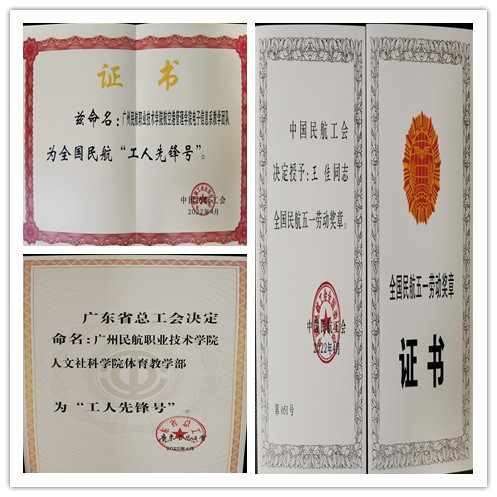 证书
兹命名：广州民航职业技术学院航空港管理学院电子信息系教学团队
为全国民航“工人先锋号”。
中国民航工会
2022年4月
广东省总工会决定
命名：广州民航职业技术学院
人文社科学院体育教学部
为“工人先锋号”。
2022年4月
中国民航工会
决定授予：王佳同志
全国民航五一劳动奖章。
中国民航工会
2022年4月
第051号
全国民航五一劳动奖章
证书